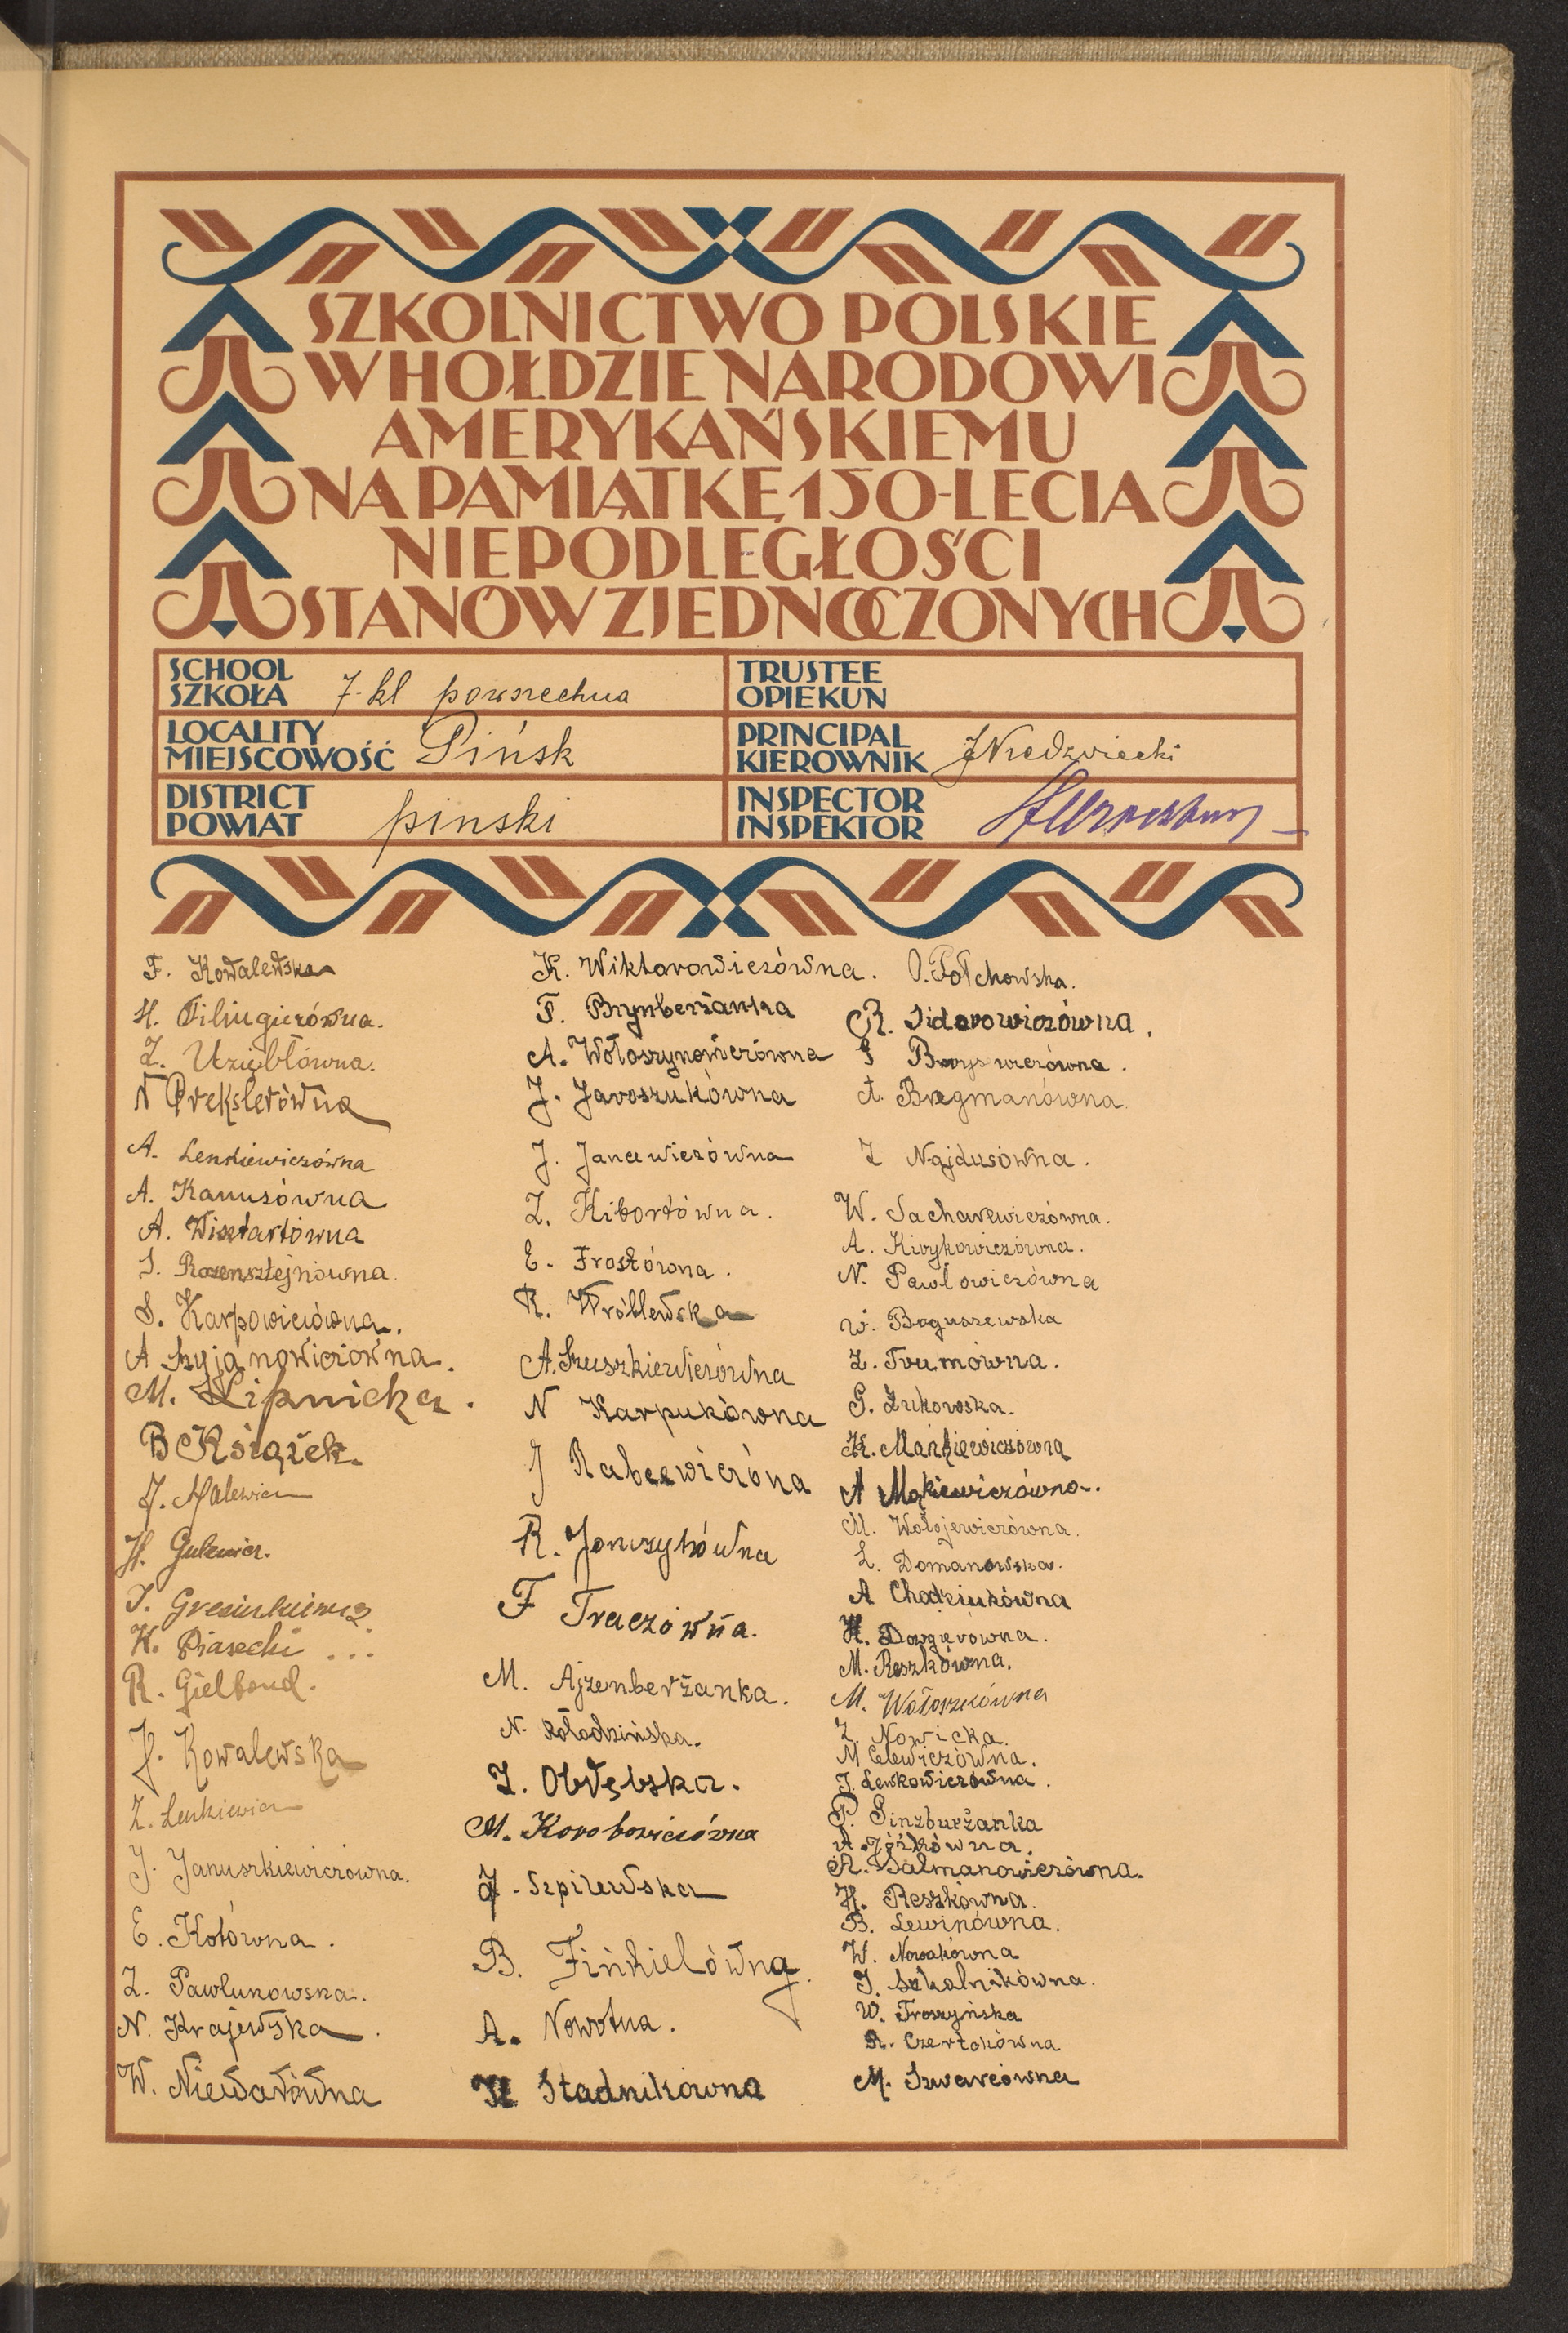 SZKOLNICTWO POLSKIE
W HOŁDZIE NARODOWI
AMERYKAŃSKIEMU
NA PAMIĄTKĘ 150-LECIA
NIEPODLEGŁOŚCI
STANÓW ZJEDNOCZONYCH
SCHOOL
SZKOŁA 7-kl powszechna
TRUSTEE
OPIEKUN
LOCALITY
MIEJSCOWOŚĆ Pińsk
PRINCIPAL
KIEROWNIK JNiedzwiecki
DISTRICT
POWIAT pinski
INSPECTOR
INSPEKTOR
F. Kowalewska
H.
Z. Uziębłówna.
N Drekslerówna
A. Lenkiewiczówna
A. Kanusówna
A. Wisztartówna
S. Rozensztejnówna.
S. Karpowiczówna.
A Szyjanowiczówna.
M. Lipnicka.
B Książek.
J. Malewicz
H. Gulewicz.
K. Piasecki ...
R. Gielbond.
J. Kowalewska
Z. Lenkiewicz
J. Januszkiewiczówna.
E. Kotówna.
Z. Pawlunowska.
N. Krajewska.
W. Niewarówna
K. Wiktorowiczówna.
F. Brynberżanka
A. Wołoszynowiczówna
J. Jaroszukówna
J. Janczewiczówna
Z. Kibortówna.
E. Frostówna.
R. Wróblewska
A. Szuszkiewiczówna
N Karpukówna
J Rabcewiczóna
R. Jonczykówna
F Traczówna.
M. Ajzenberżanka.
N. Kołodzińska.
Z. Obrębska.
M. Korobowiczówna
J. Szpilewska
B. Finkielówna.
A. Nowotna.
H Stadnikówna
O. Połchowska.
R. Sidorowiczówna.
S Borysewiczówna.
A. Bregmanówna.
Z Najdusówna.
W. Sacharewiczówna.
A. Kirykowiczówna.
N. Pawłowiczówna
W. Boguszewska
Z. Trumówna.
G. Żukowska.
K. Mankiewiczówna
A Mąkiewiczówna.
M. Wołojewiczówna.
L. Domanowska.
A Chodziukówna
H. Dowgierówna.
M. Reszkówna.
M. Wołoszkówna
Z. Nowicka.
M Celewiczówna.
J. Lewkowiczówna.
P. Ginzburżanka
A. Józkówna.
A. Salmanowiczówna.
H. Reszkówna.
B. Lewinówna.
W. Nowakówna
J. Szkolnikówna.
W. Troszyńska
R. Czertokówna
M. Szwarcówna